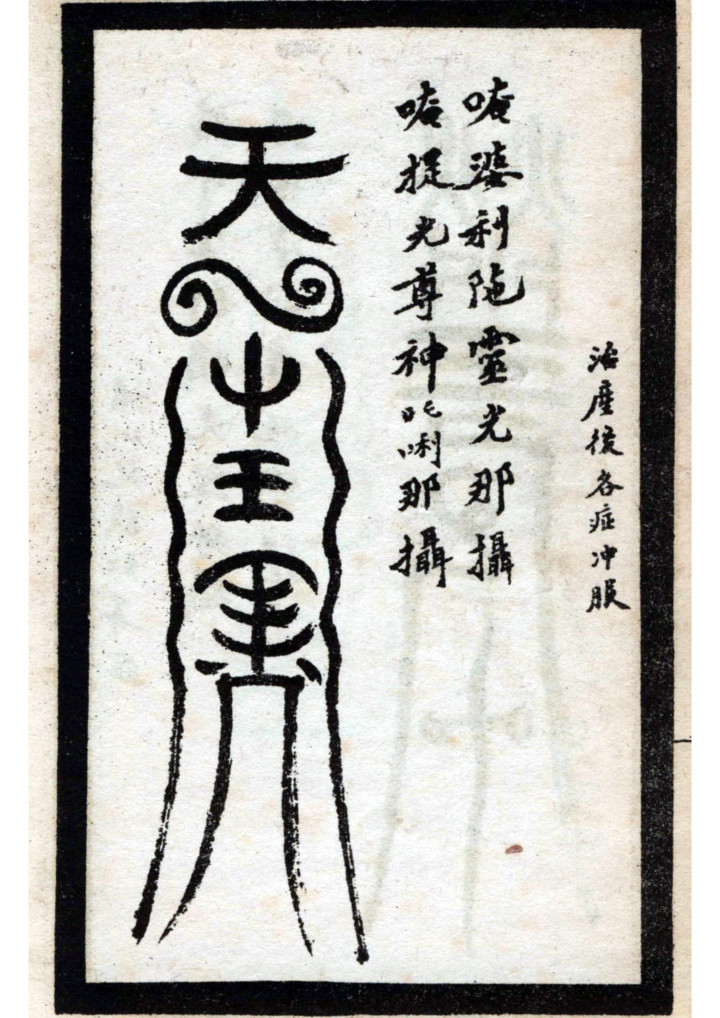 治產後各症冲服
唵婆利陁靈光那攝
唵捉光尊神吒唎那攝
天